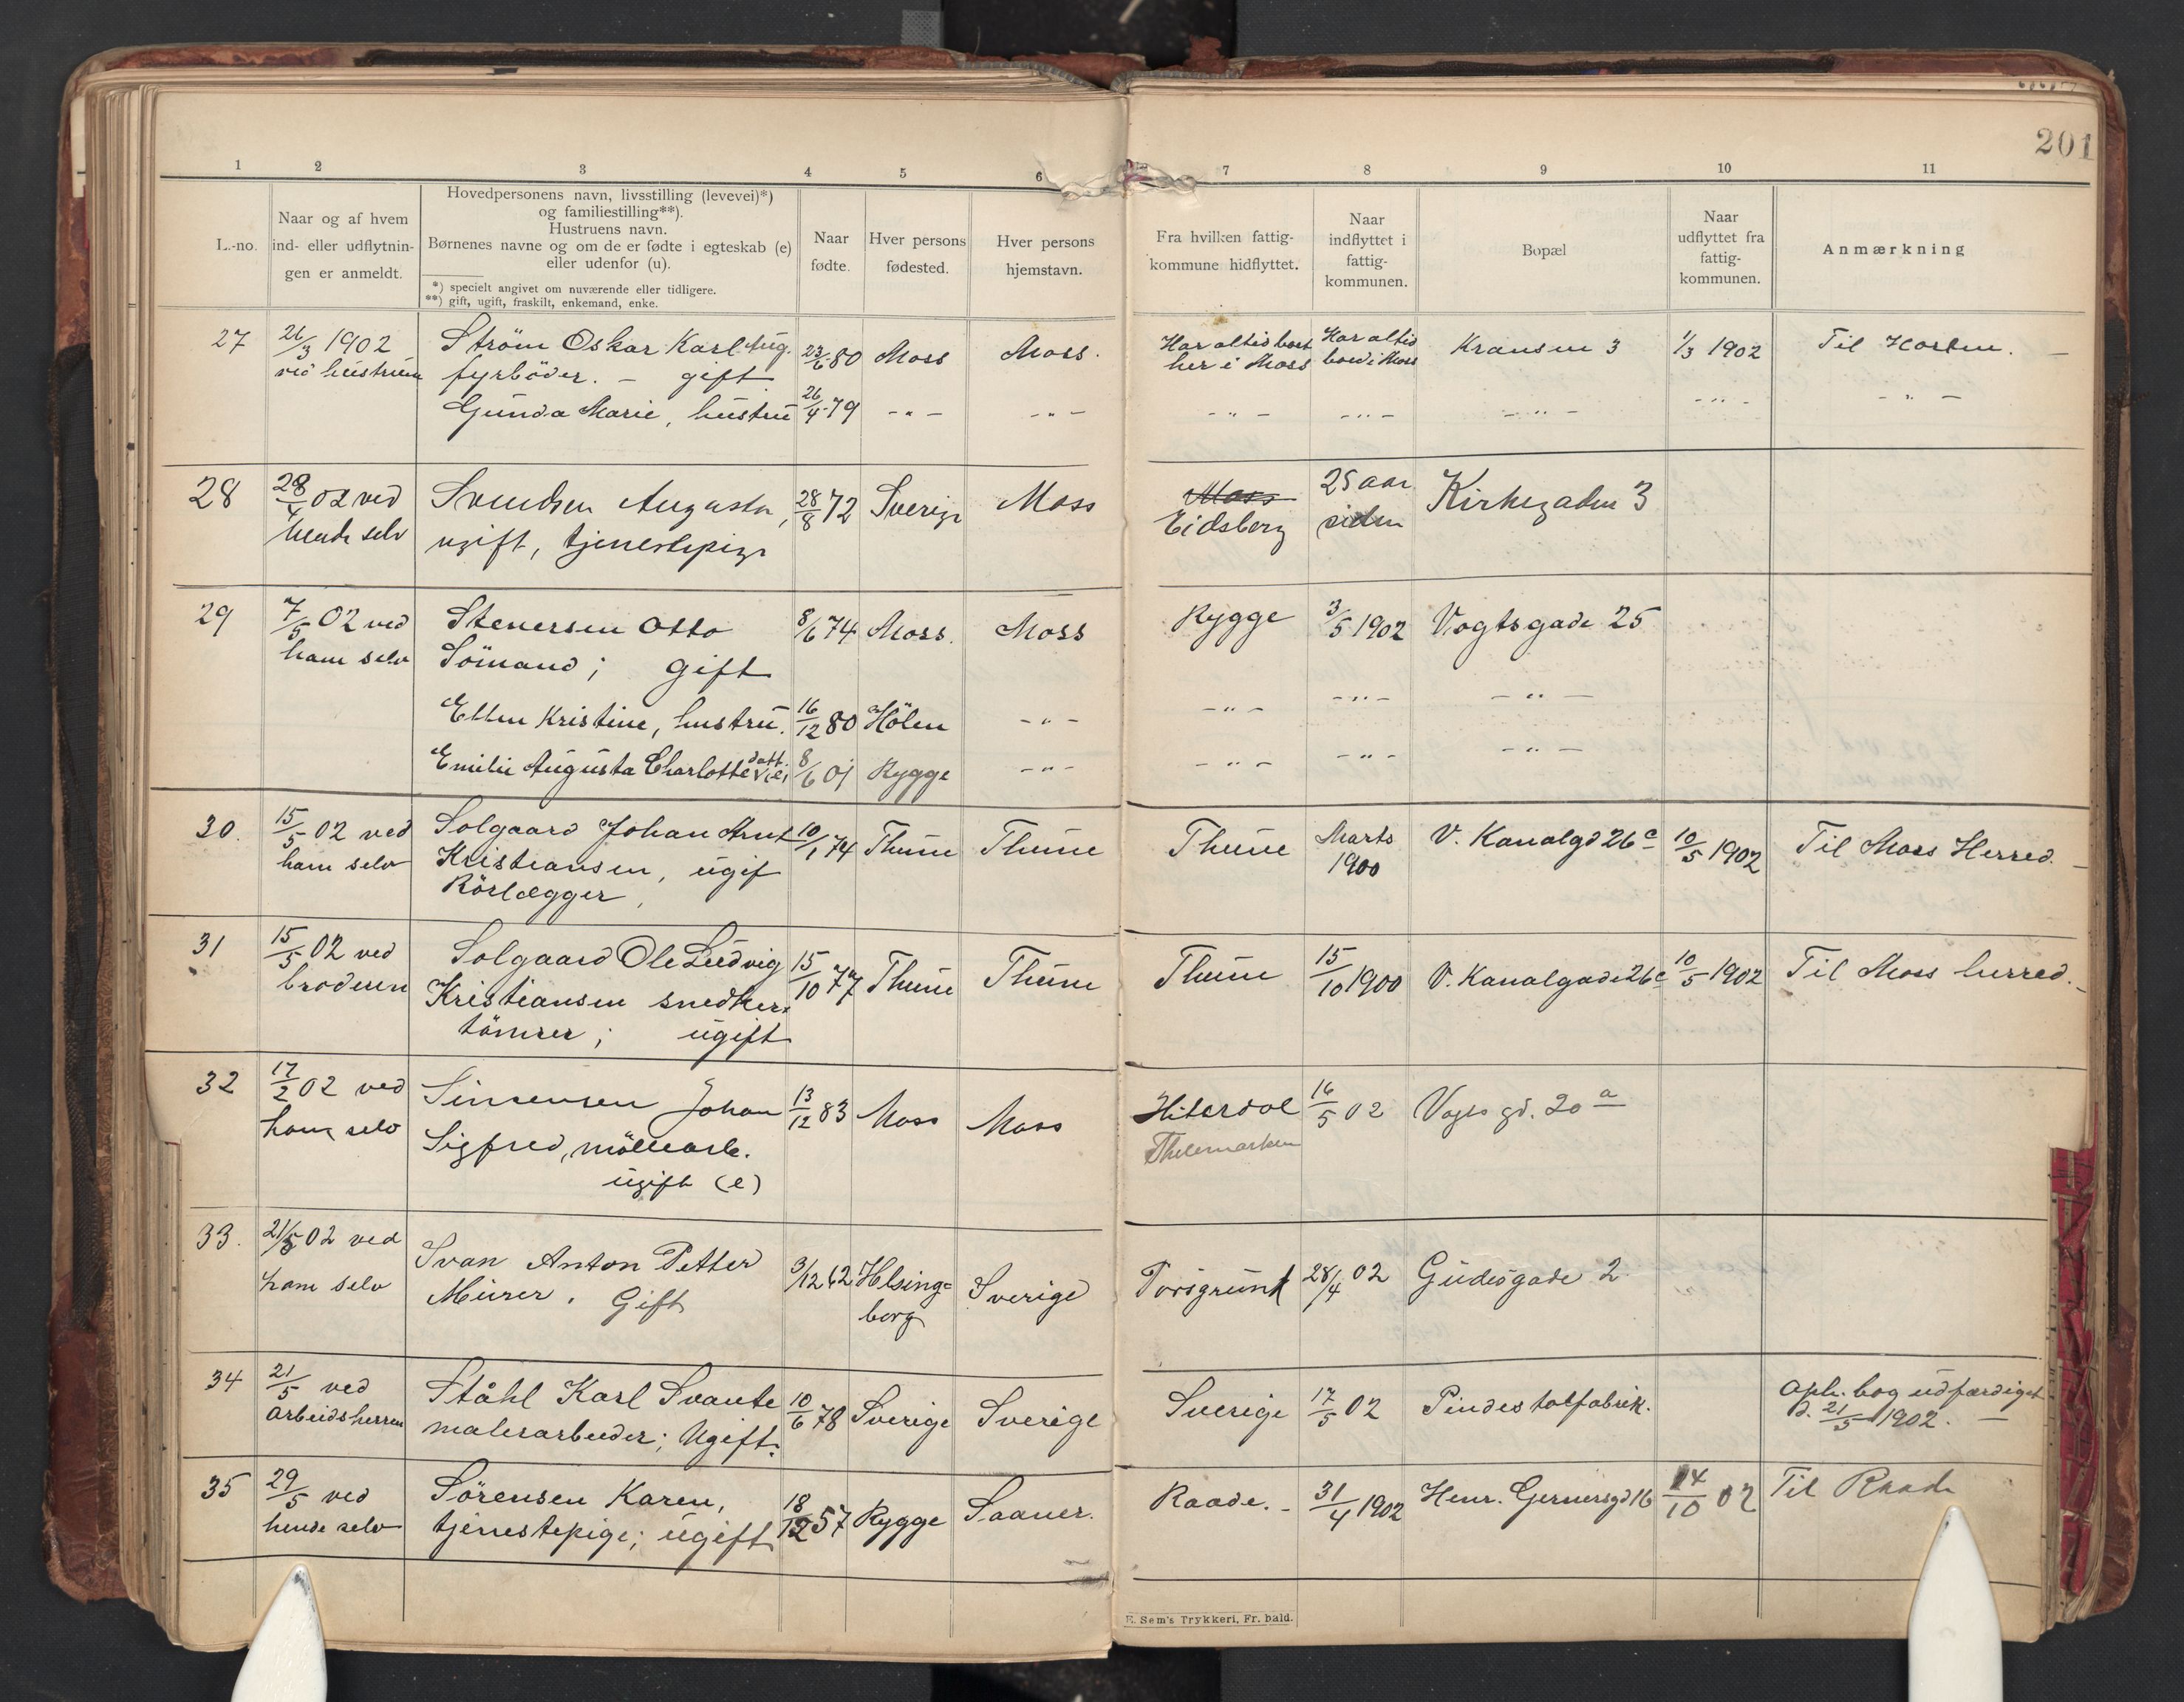 201
1 2 3 4 5 6 7 8 9 10 11
L.-no.
Naar og af hvem
ind- eller udflytnin-
gen er anmeldt.
Hovedpersonens navn, livsstilling (levevei)*)
og familiestilling**).
Hustruens navn.
Børnenes navne og om de er fødte i egteskab (e)
eller udenfor (u).
*) specielt angivet om nuværende eller tidligere.
**) gift, ugift, fraskilt, enkemand, enke.
Naar
fødte.
Hver persons
fødested.
Hver persons
hjemstavn.
Fra hvilken fattig-
kommune hidflyttet.
Naar
indflyttet i
fattig-
kommunen.
Bopæl
Naar
udflyttet fra
fattig-
kommunen.
Anmærkning
27
26/3 1902
ved hustruen
Ström Oskar Karl Aug.
fyrböder. – gift
23/6 80 Moss Moss.
Har altid boet
her i Moss
Har altid
boed i Moss
Kransen 3 1/3 1902 Til Horten. –
Gunda Marie, hustru 26/4 79 -"- -"- -"- -"- -"- -"- -"-
28
28/4 02 ved
hende selv
Svendsen Augusta,
ugift, tjenestepige
28/8 72 Sverige Moss
Moss
Eidsberg
25 aar
siden
Kirkegaden 3
29
7/5 02 ved
ham selv
Stenersen Otto
Sömand; gift
8/6 74 Moss. Moss Rygge 3/5 1902 Vogtsgade 25
Ellen Kristine, hustru. 16/12 80 Hölen -"- -"- -"- -"-
Emilie Augusta Charlotte datt. (e) 8/6 01 Rygge -"- -"- -"- -"-
30.
15/5 02 ved
ham selv
Solgaard Johan Arnt
Kristiansen, ugif
Rörlægger,
10/1 74 Thune Thune Thune
Marts
1900
V. Kanalgd 26c 10/5 1902 Til Moss Herred. –
31
15/5 02 ved
broderen
Solgaard Ole Ludvig
Kristiansen snedker
tömrer; ugift
15/10 77 Thune Thune Thune 15/10 1900 V. Kanalgade 26c 10/5 1902 Til Moss herred. –
32
17/2 02 ved
ham selv
Simensen Johan
Sigfred, möllearb.
ugift (e)
13/12 83 Moss Moss
Hiterdal
Thelemarken
16/5 02 Vogts gd. 20a
33.
21/5 02 ved
ham selv
Svan Anton Petter
Murer. Gift
3/12 62
Helsing=
borg
Sverige Porsgrund 28/4 02 Gudesgade 2.
34
21/5 ved
Arbeidsherren
Ståhl Karl Svante
malerarbeider; Ugift.
10/6 78 Sverige Sverige Sverige 17/5 02 Pindestolfabrik.
Oph. bog udfærdiget
d. 21/5 1902. –
35
29/5 ved
hende selv
Sörensen Karen,
tjenestepige; ugift
18/12 57 Rygge Saaner. Raade. – 31/4 1902 Henr. Gernersgd 16 14/10 02 Til Raade
E. Sem's Trykkeri, Fr. hald.